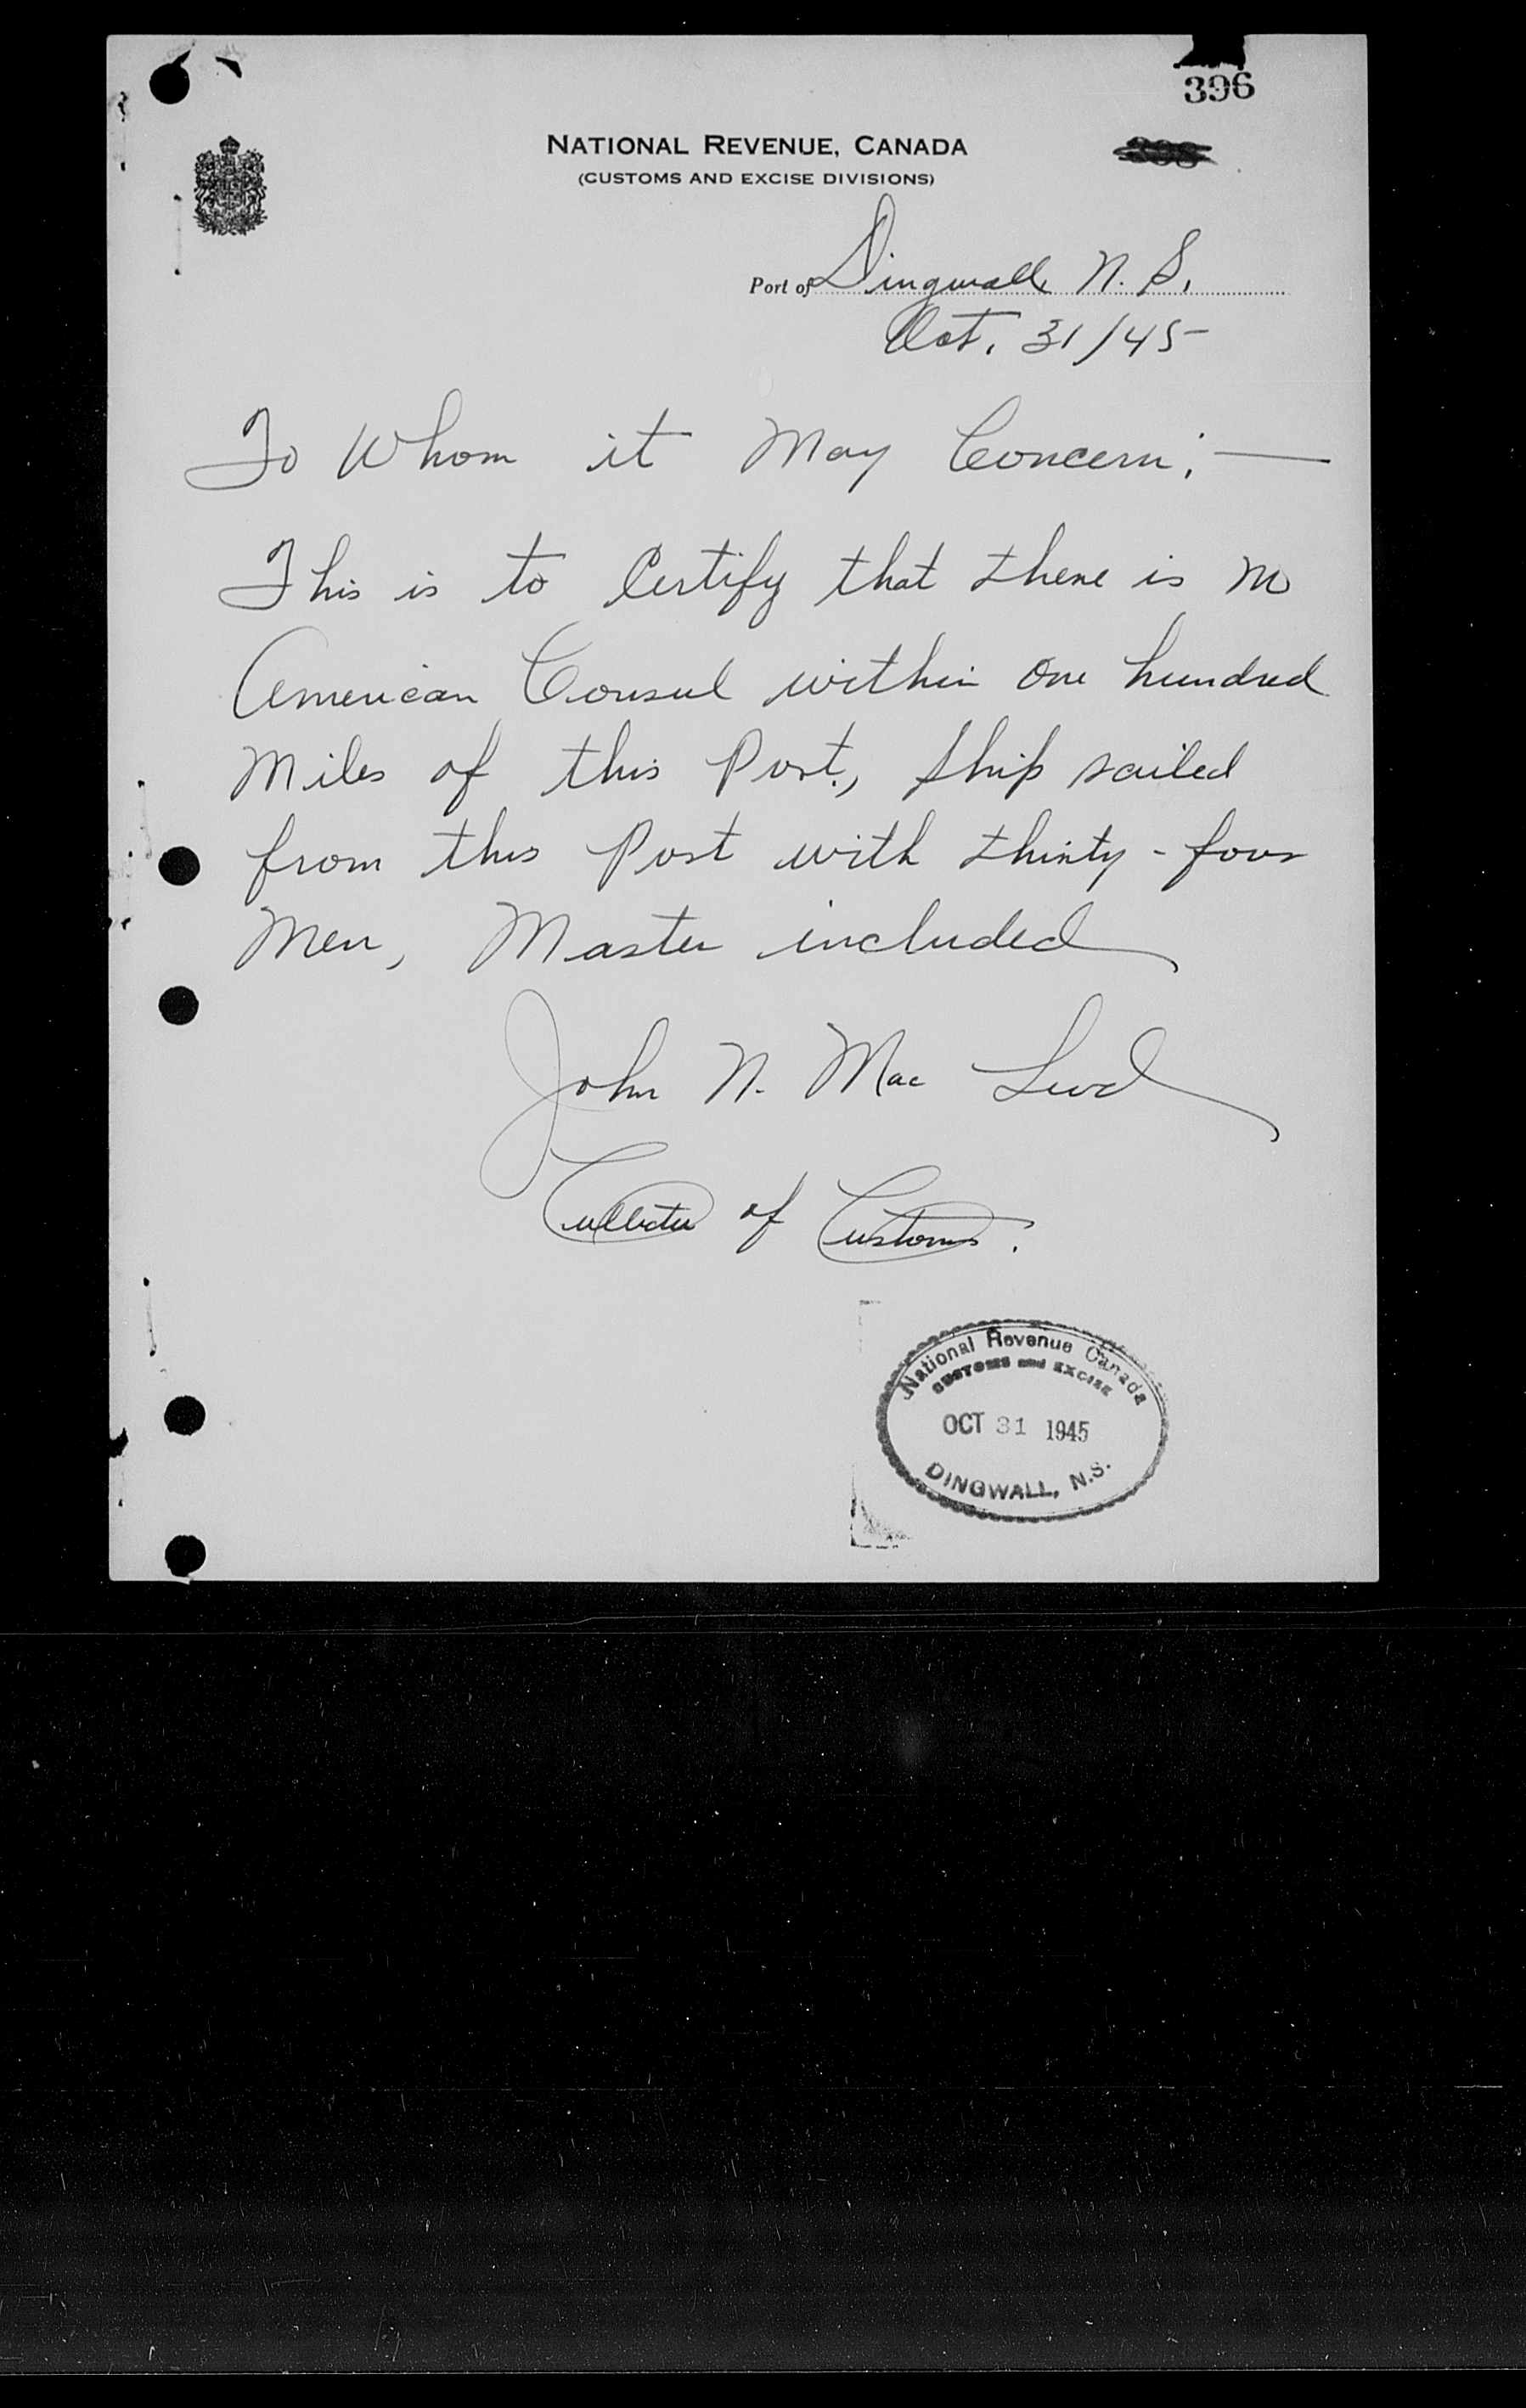 396
NATIONAL REVENUE, CANADA
(CUSTOMS AND EXCISE DIVISIONS)
Port of Dingwall, N. S.
Oct. 31/45
To Whom it May Concern; —
This is to Certify that there is no
American Consul within one hundred
Miles of this Port, Ship sailed
from this Port with thirty-four
Men, Master included
John N. Mac Leod
Collector of Customs.
National Revenue Canada
CUSTOMS and EXCISE
OCT 31 1945
DINGWALL, N.S.